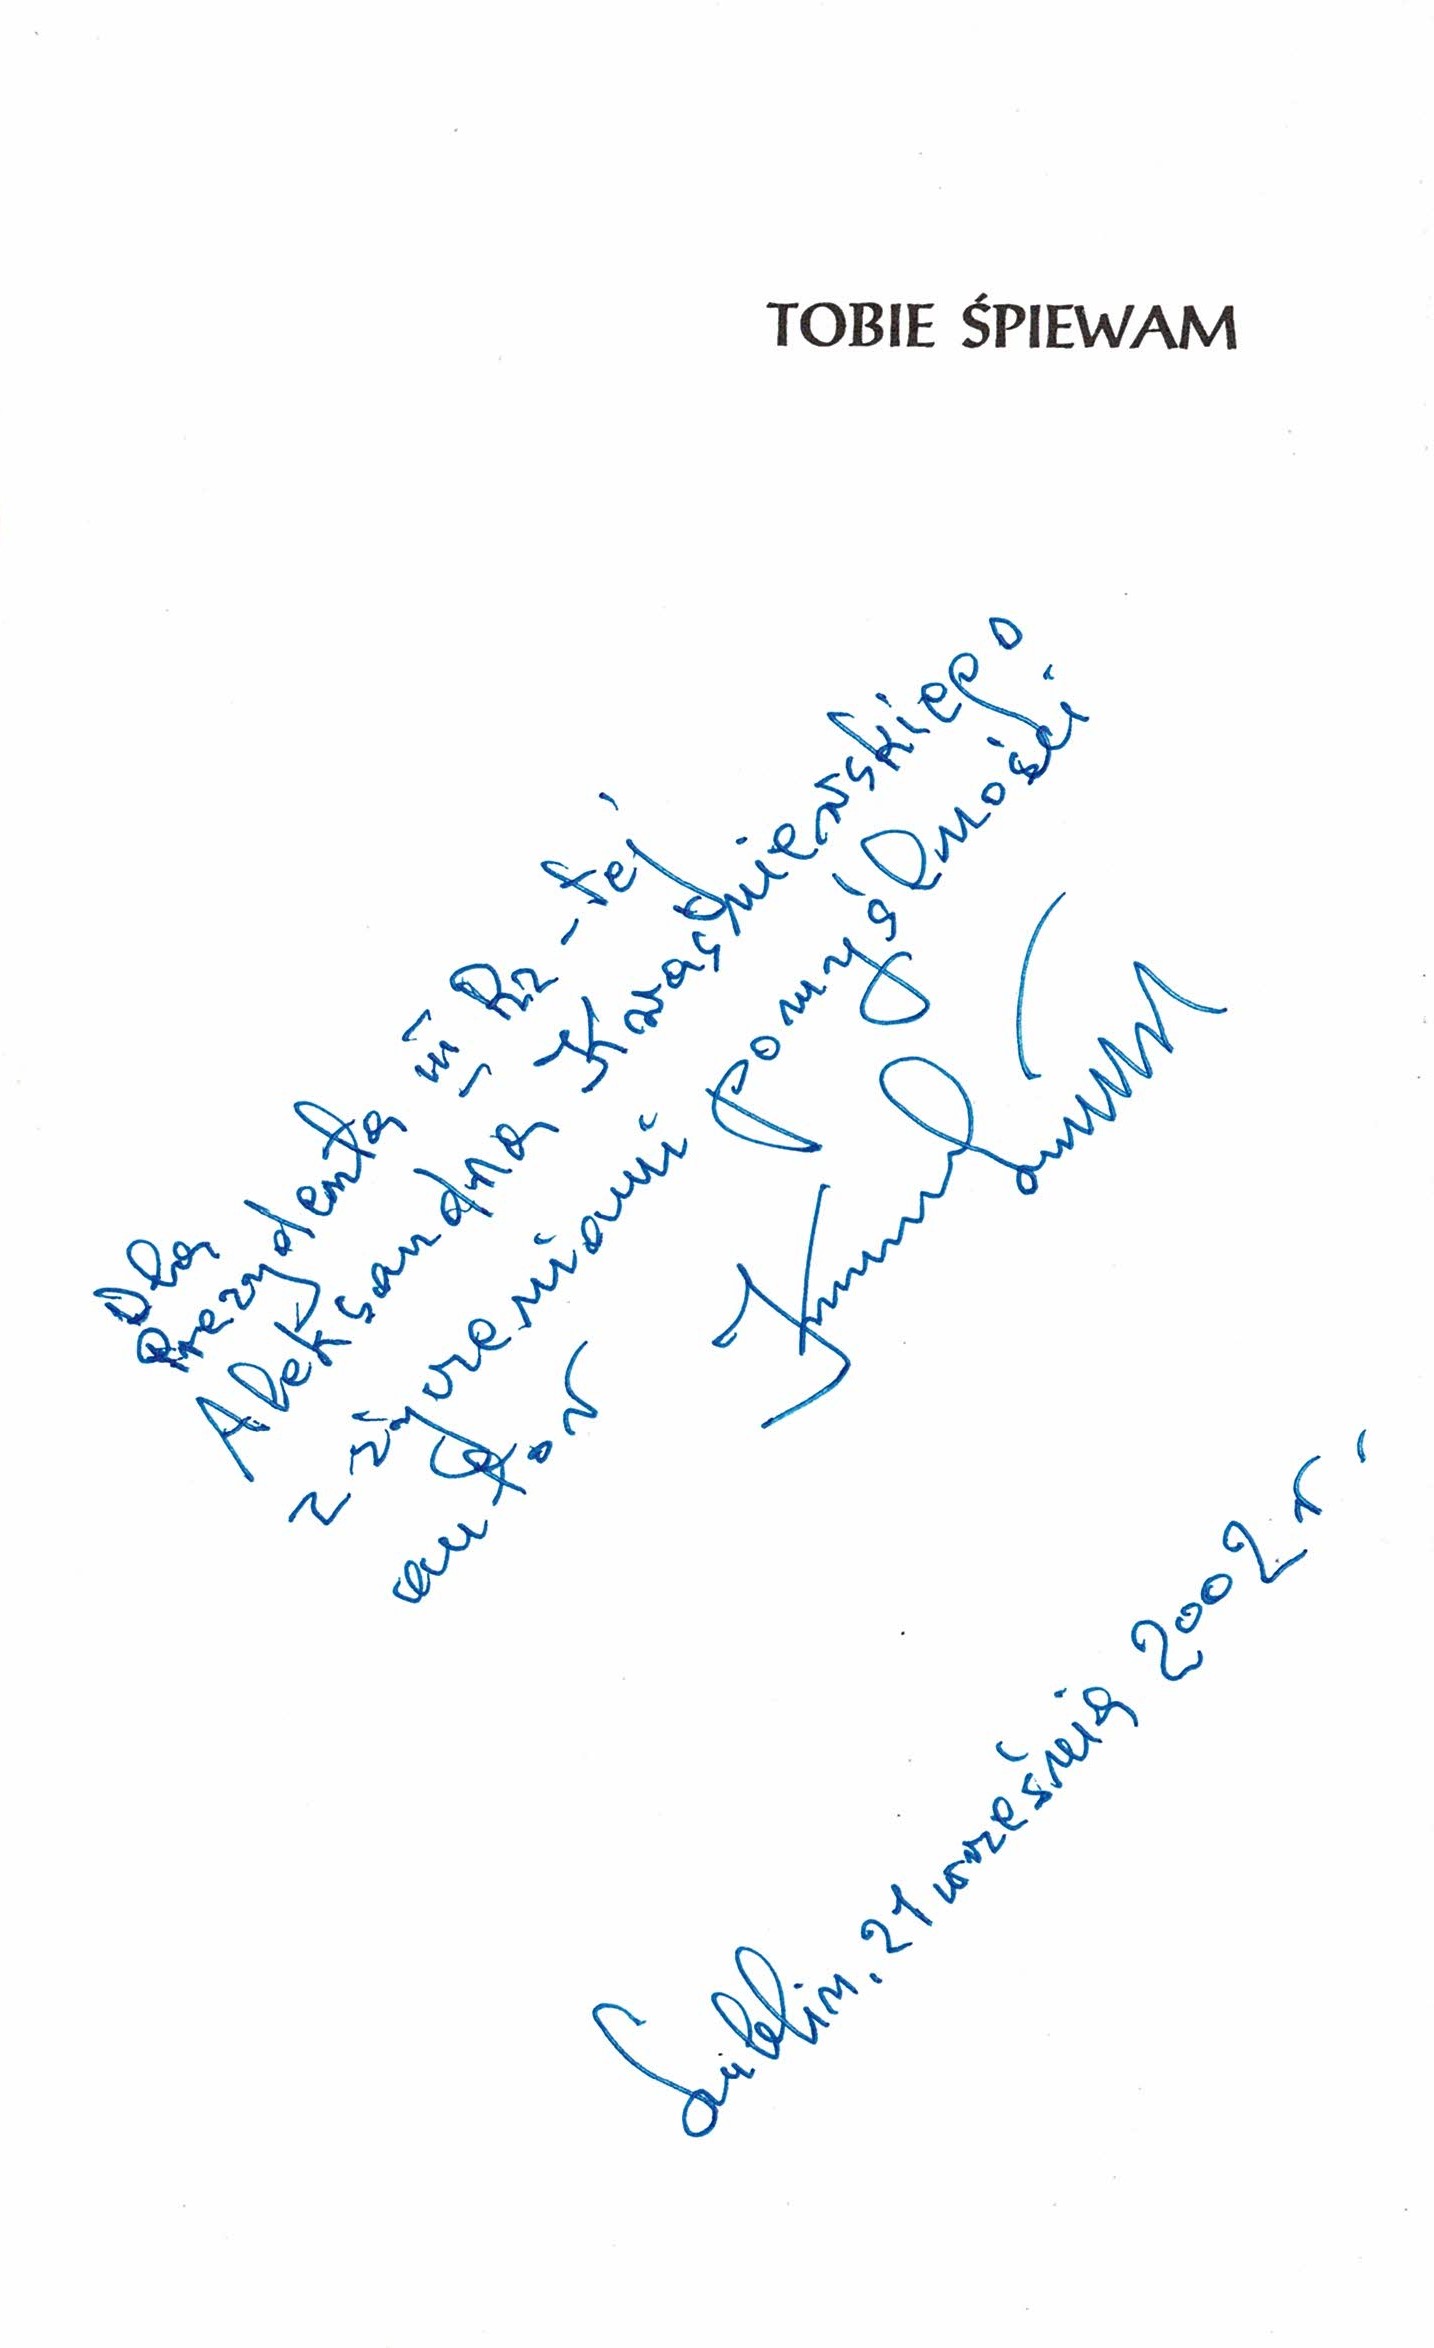 TOBIE ŚPIEWAM
Dla
Prezydenta III Rz-tej
Aleksandra Kwaśniewskiego
z życzeniami pomyślności
autor
Lublin, 21 września 2002 r.